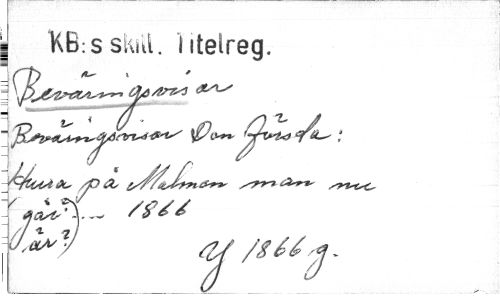 KB:s skill. Titelreg.
Beväringsvisor
Beväringsvisor Den första:
Hura på Malmen man nu
(går?).... 1866
är?)
Y 1866 g.